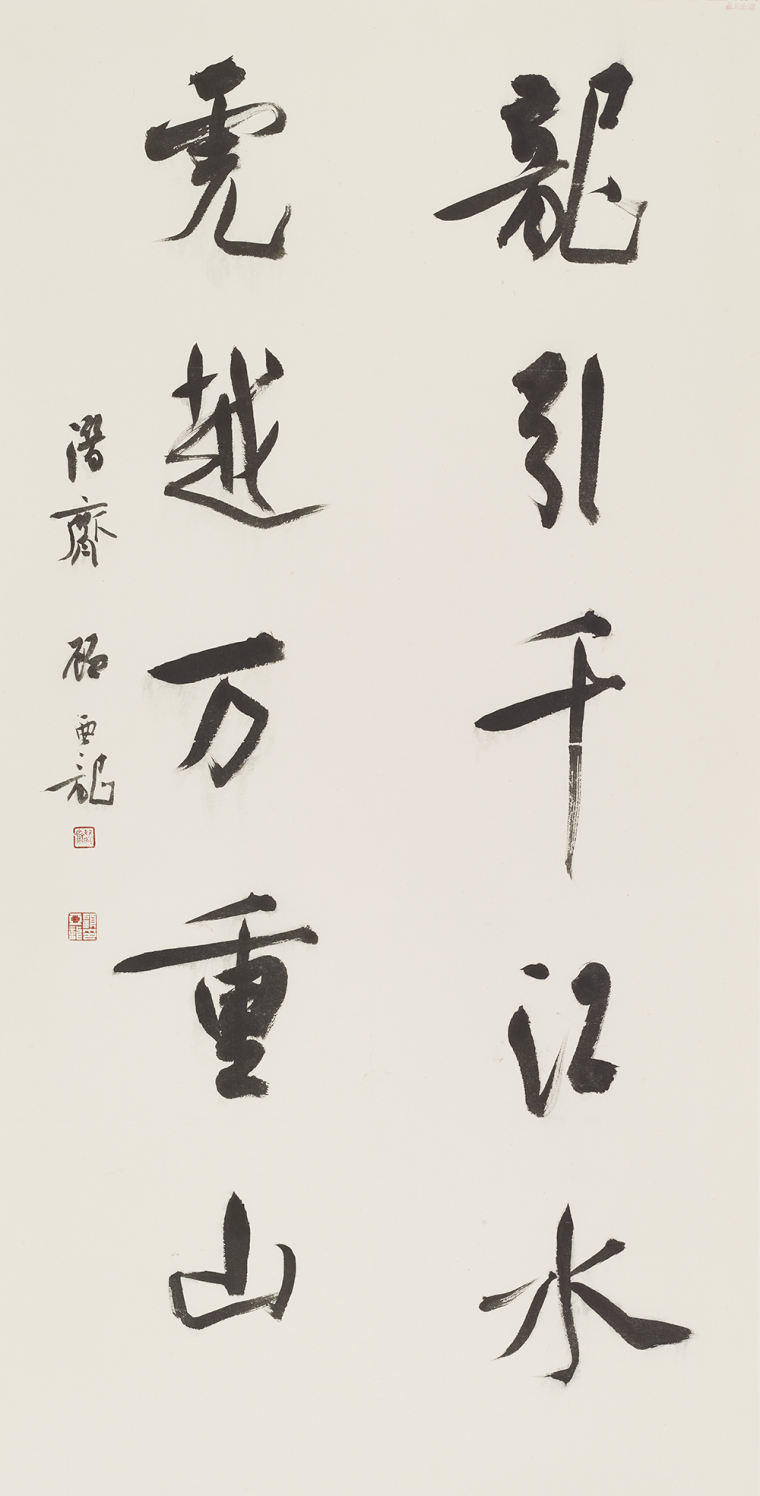 龍引千江水
虎越万重山
潛齋 顾亜龍